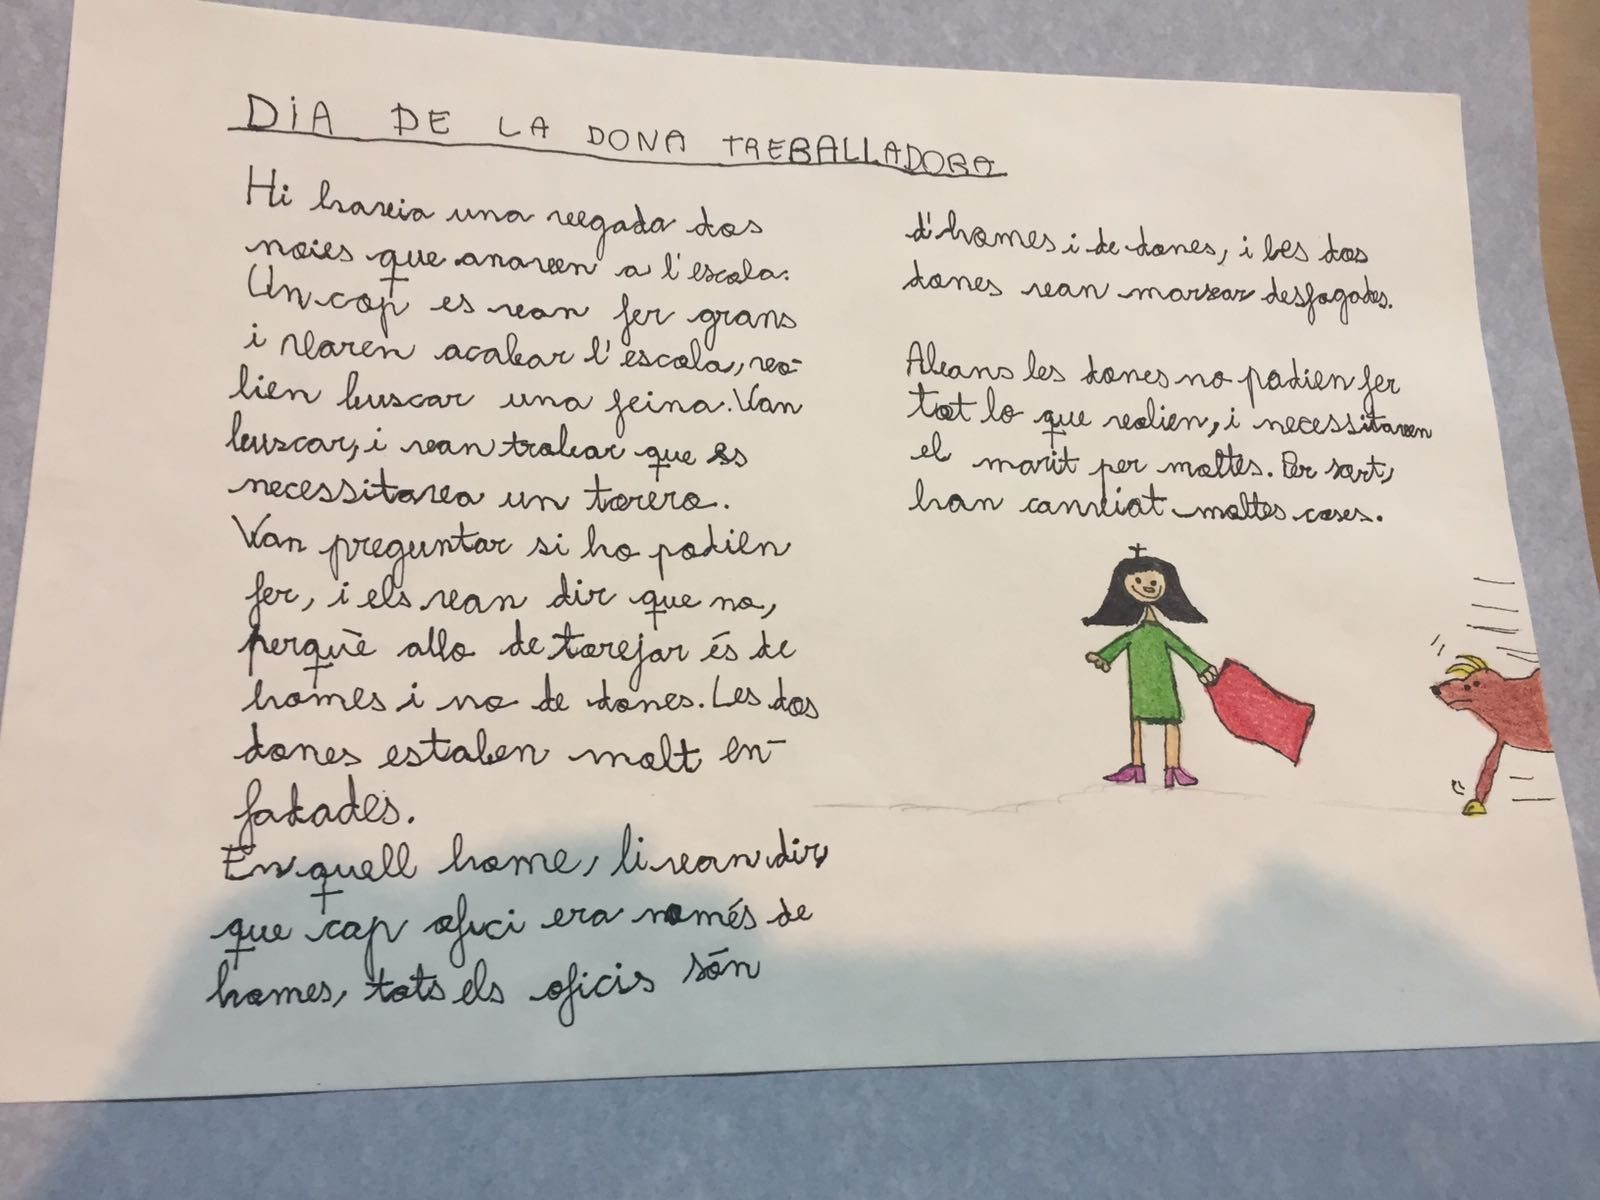 DIA DE LA DONA TREBALLADORA
Hi havia una vegada dos
noies que anaven a l'escola.
Un cop es van fer grans
i varen acabar l'escola, vo-
lien buscar una feina. Van
buscar, i van trobar que es
necessitava un torero.
Van preguntar si ho podien
fer, i els van dir que no,
perquè allo de torejar és de
homes i no de dones. Les dos
dones estaben molt en-
fadades.
En quell home, li van dir,
que cap ofici era només de
homes, tots els oficis són
d'homes i de dones, i les dos
dones van marxar desfogades.
Abans les dones no podien fer
tot lo que volien, i necessitaven
el marit per moltes. Per sort,
han canviat moltes coses.